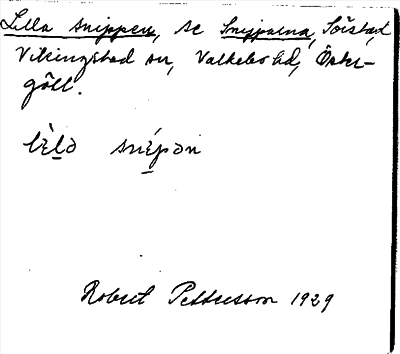 Lilla snippen, se Snipporna, Söistad,
Vikingstad sn, Valkebo hd, Öster-
götl.
lìlə snépən
Robert Pettersson 1929